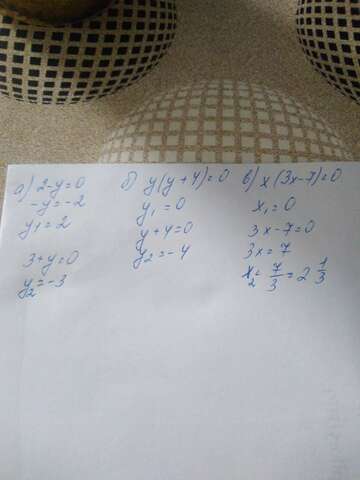 а) 2-y=0
-y=-2
y1=2
3+y=0
y2=-3
б) y(y+4)=0
y1=0
y+4=0
y2=-4
в) x(3x-7)=0.
x1=0
3x-7=0
3x=7
x2=7/3=2 1/3